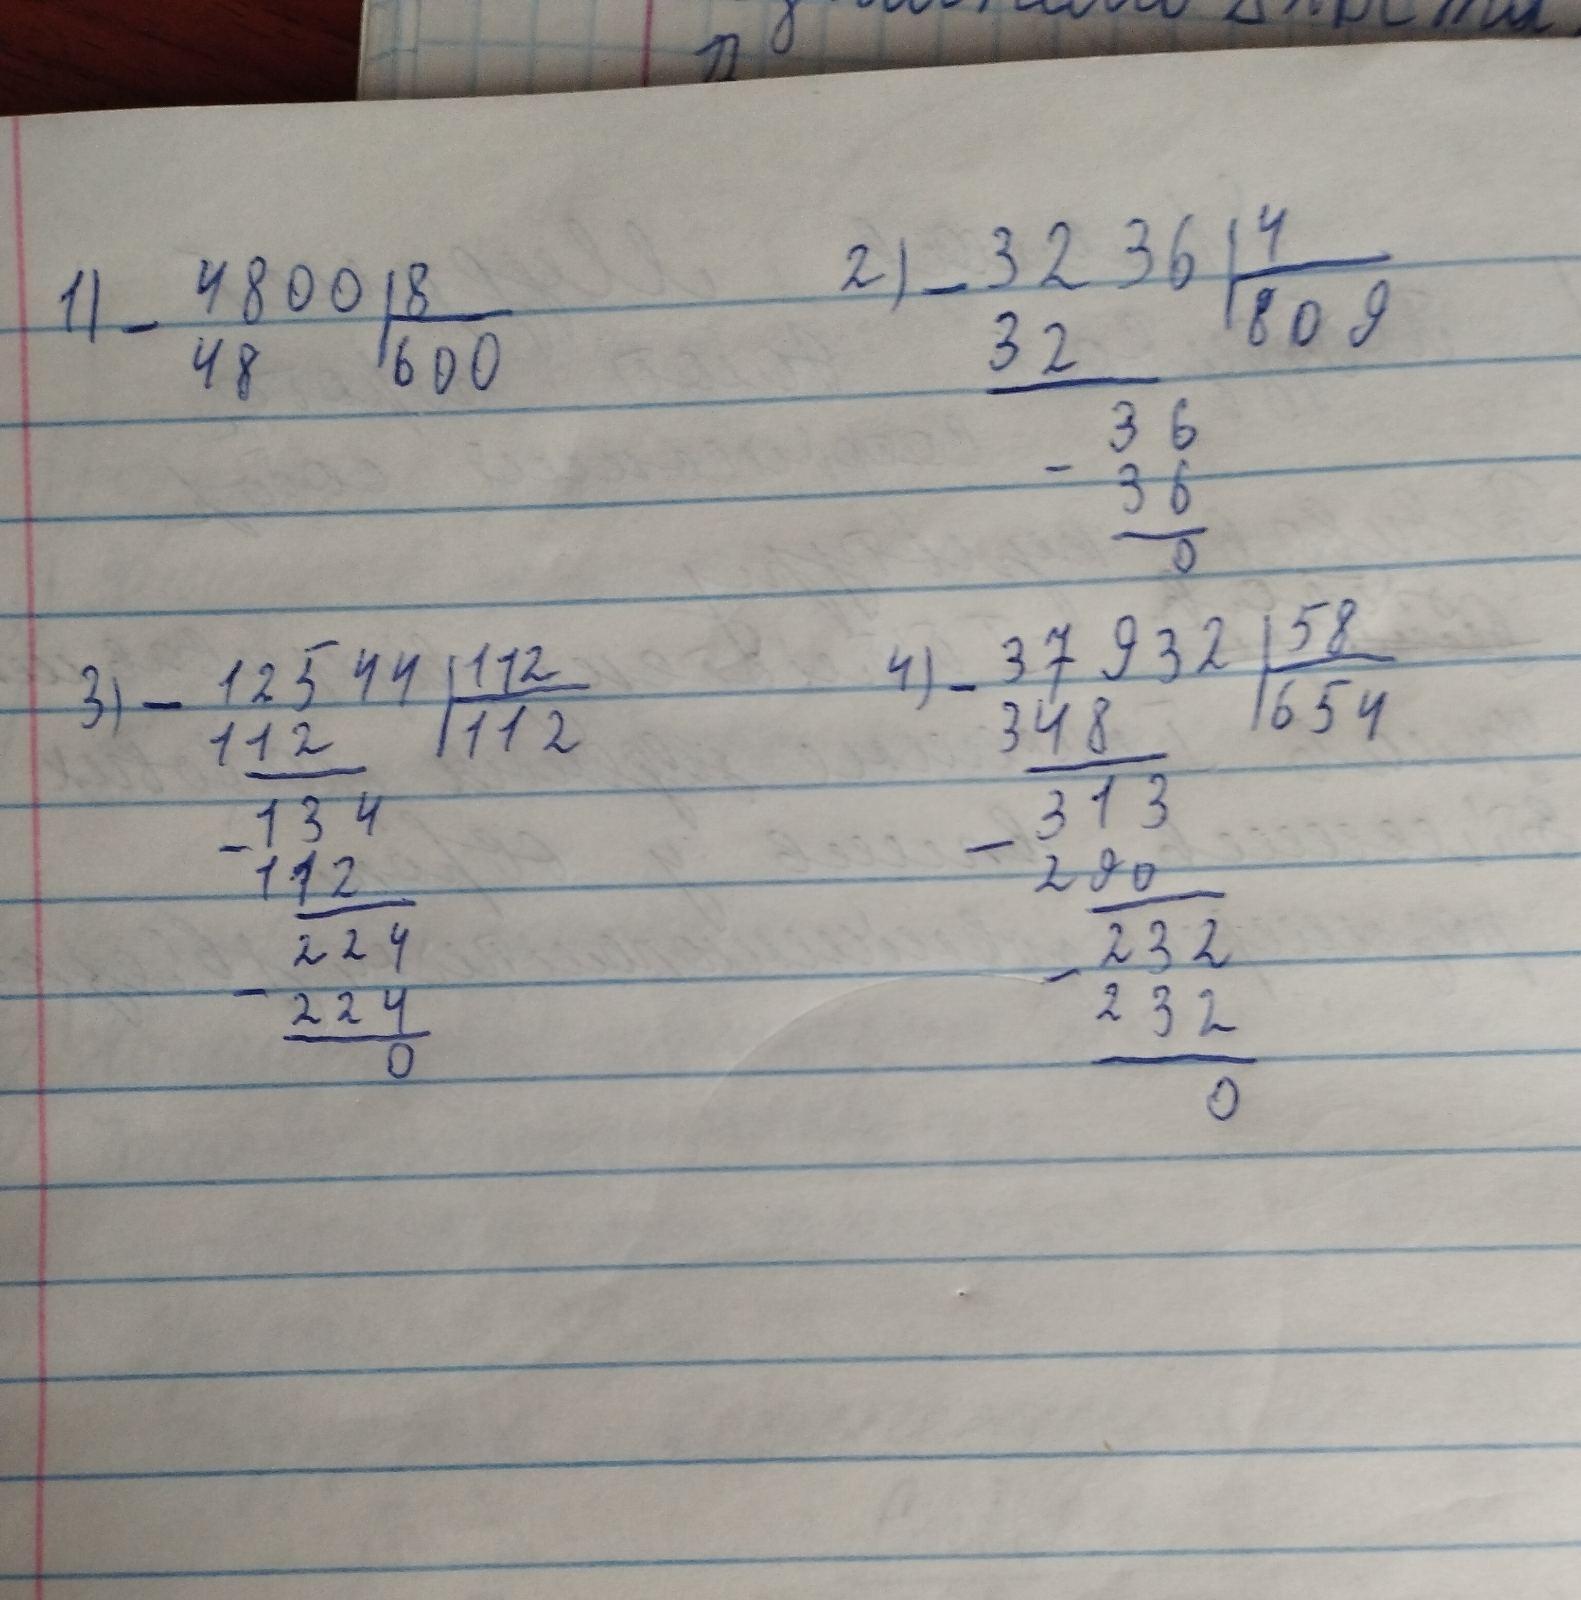 1) - 4800 | 8
48 | 600
2) - 3236 | 4
32 | 809
36
- 36
0
3) - 12544 | 112
112 | 112
134
- 112
224
- 224
0
4) - 37932 | 58
348 | 654
313
- 290
232
- 232
0